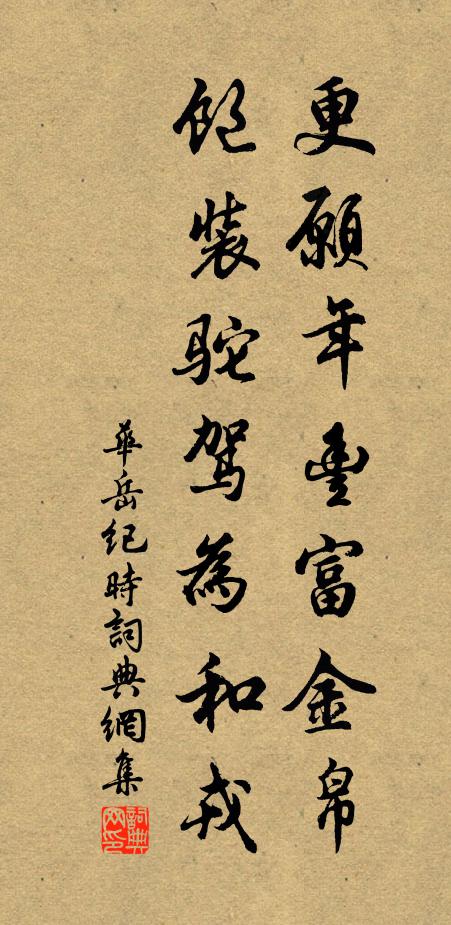 更願年豐富金帛
飽裝駝駕為和戎
華岳紀時詞典網集
詞典网印